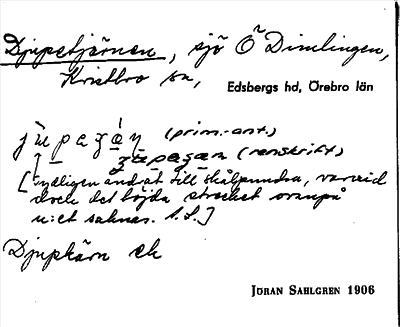 Djupetjärnen, sjö Ö Dimlingen,
Kvistbro sn,
Edsbergs hd, Örebro län
(prim.-ant.)
(renskrift)
[tydligen ändrat till skålpundsa, varvid
dock det böjda strecket ovanpå
u:et saknas. L.S.]
Djupkärn ek
JÖRAN SAHLGREN 1906